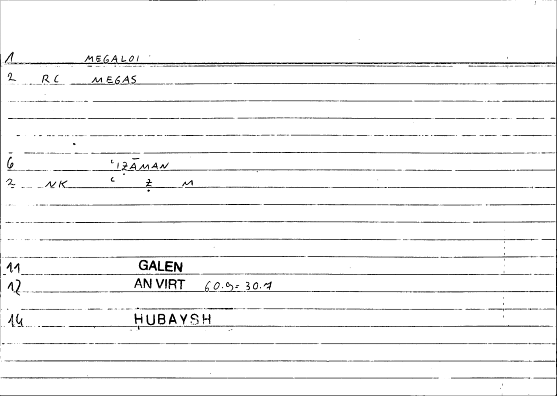 1 MEGALOI
2 RC MEGAS
6 ʿIẒĀMAN
2 NK ʿ Ẓ M
11 GALEN
12 AN VIRT 60.9=30.7
14 HUBAYSH